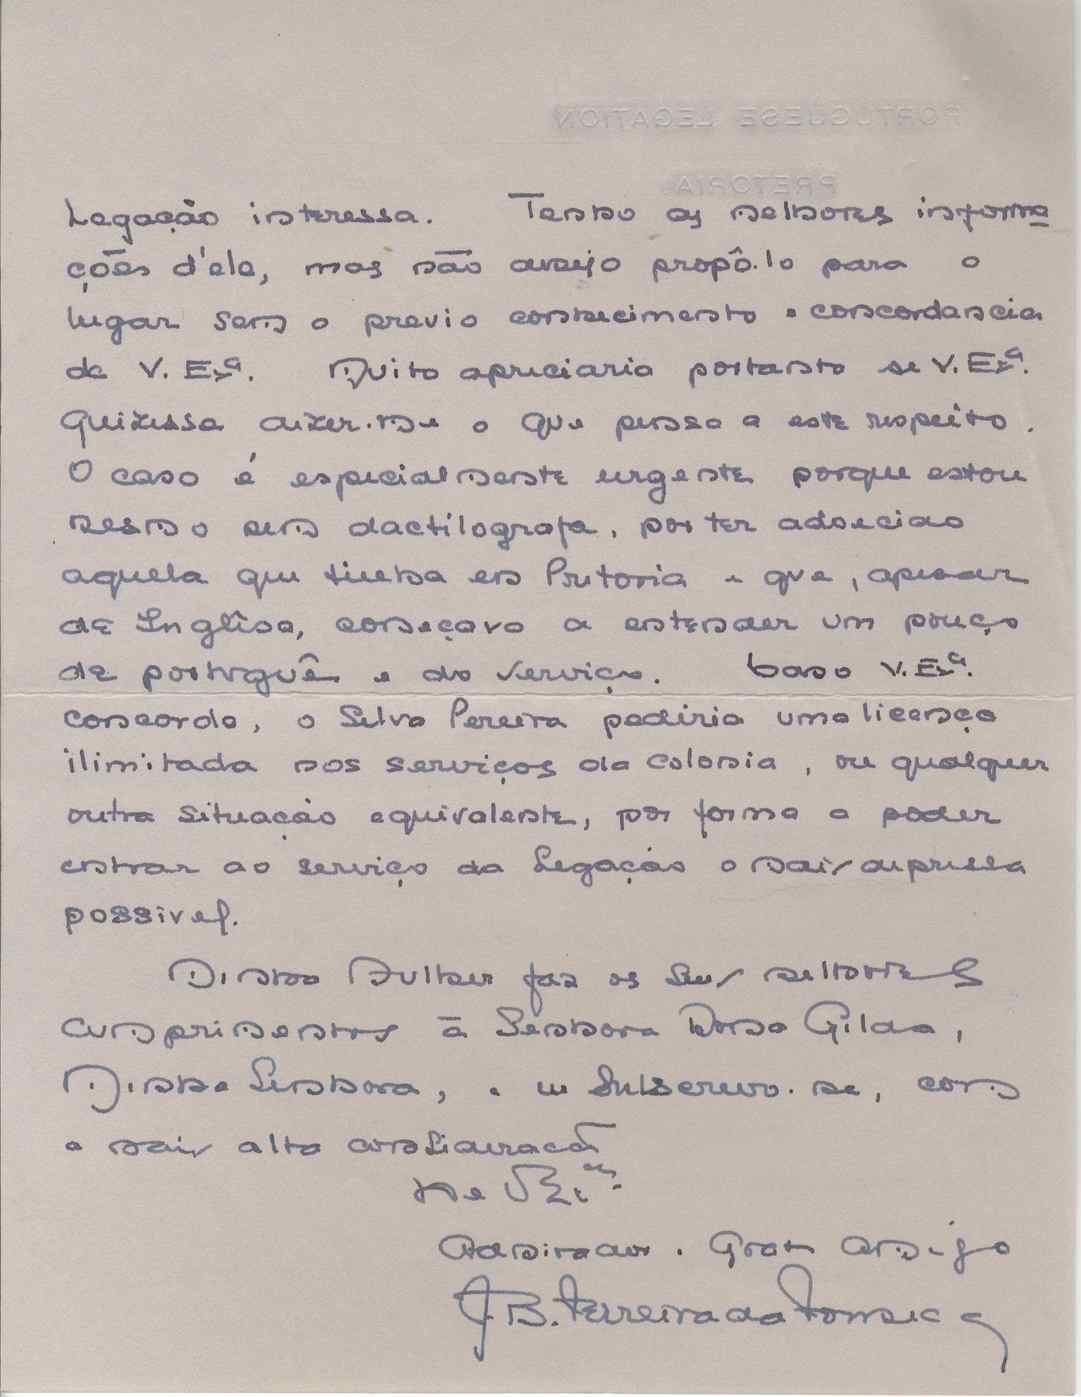 PORTUGUESE LEGATION
PRETORIA
Legação interessa. Tenho as melhores informa
ções d'ele, mas não desejo propô-lo para o
lugar sem o previo conhecimento e concordancia
de V. Exª. Muito apreciaria portanto se V. Exª.
quizesse dizer-me o que pensa a este respeito.
O caso é especialmente urgente porque estou
mesmo sem dactilografa, por ter adoecido
aquela que tinha em Pretoria e que, apesar
de Inglêsa, começava a entender um pouco
de português e do serviço. Caso V. Exª.
concorde, o Silva Pereira pediria uma licença
ilimitada nos serviços da Colonia, ou qualquer
outra situação equivalente, por forma a poder
entrar ao serviço da Legação o mais depressa
possivel.
Minha Mulher faz os seus melhores
cumprimentos á Senhora Dona Gilda,
Minha Senhora, e eu subscrevo-me, com
a mais alta consideração
De V. Exª.
Admirador e Grato amigo
J B. Ferreira da Fonseca